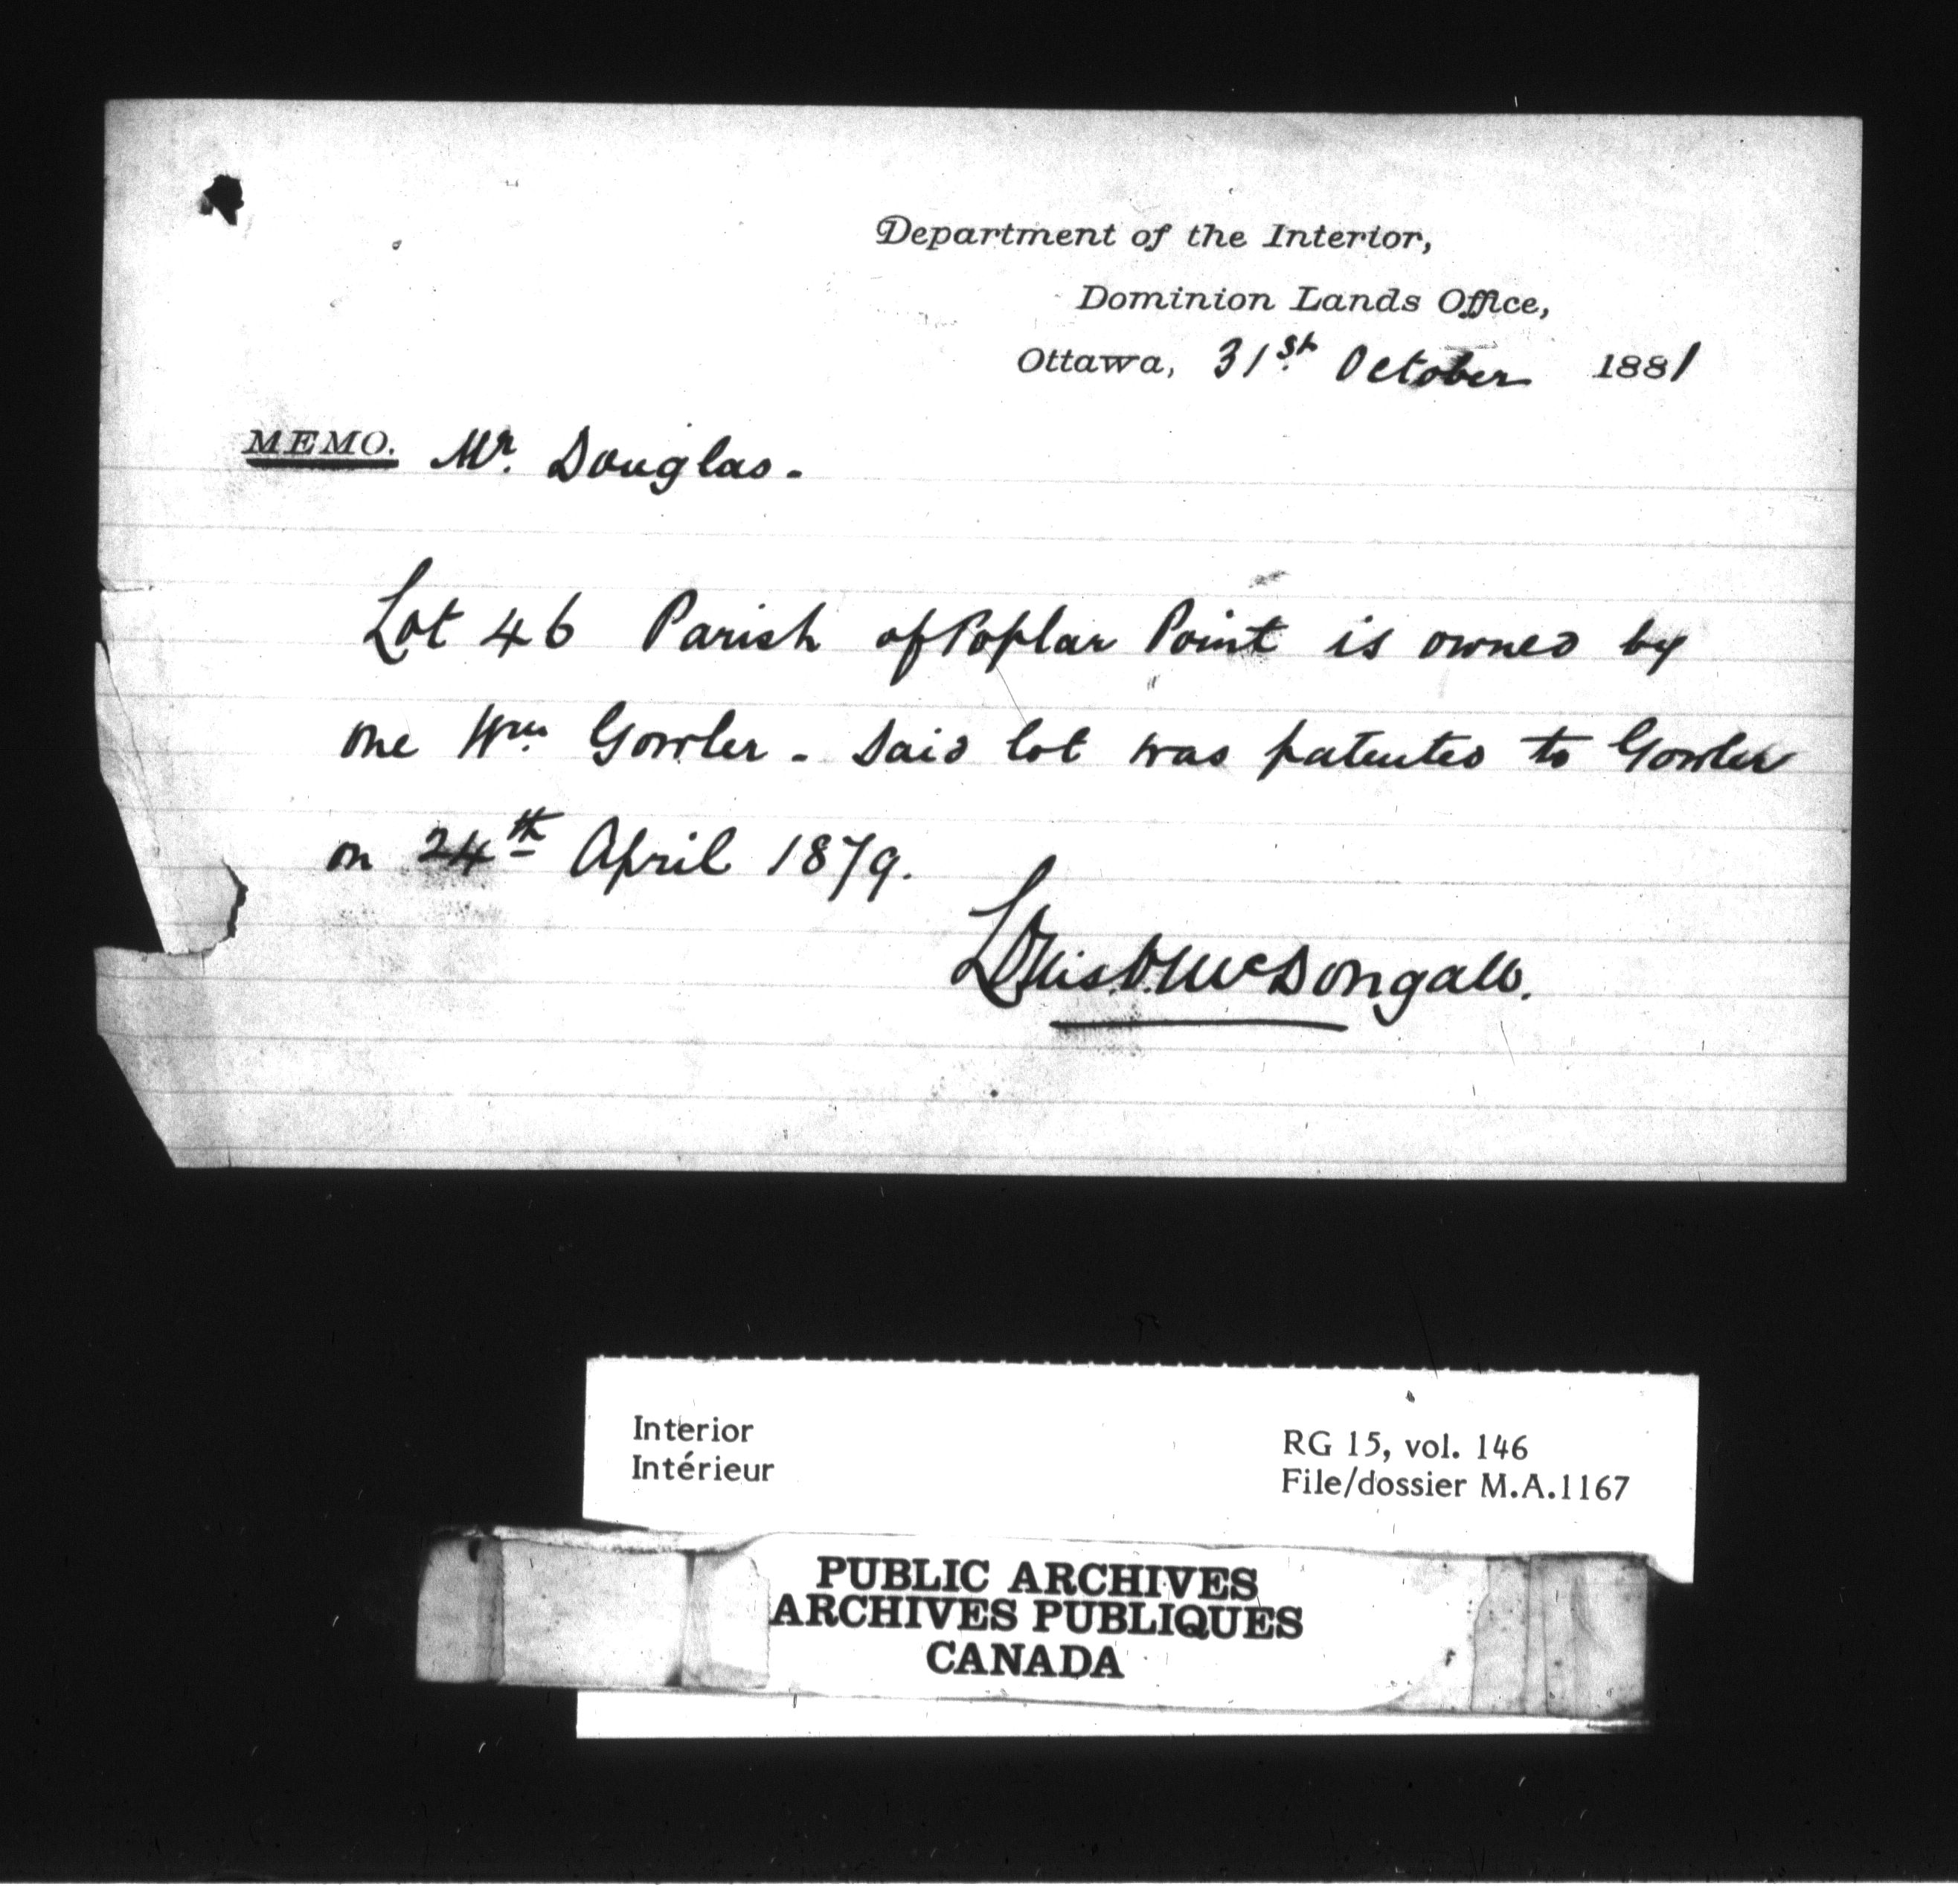 Department of the Interior,
Dominion Lands Office,
Ottawa, 31st October 1881
MEMO. Mr. Douglas.
Lot 46 Parish of Poplar Point is owned by
one Wm Gowler. Said lot was patented to Gowler
on 24th April 1879.
McDougall.
Interior
Intérieur
RG 15, vol. 146
File/dossier M.A.1167
PUBLIC ARCHIVES
ARCHIVES PUBLIQUES
CANADA